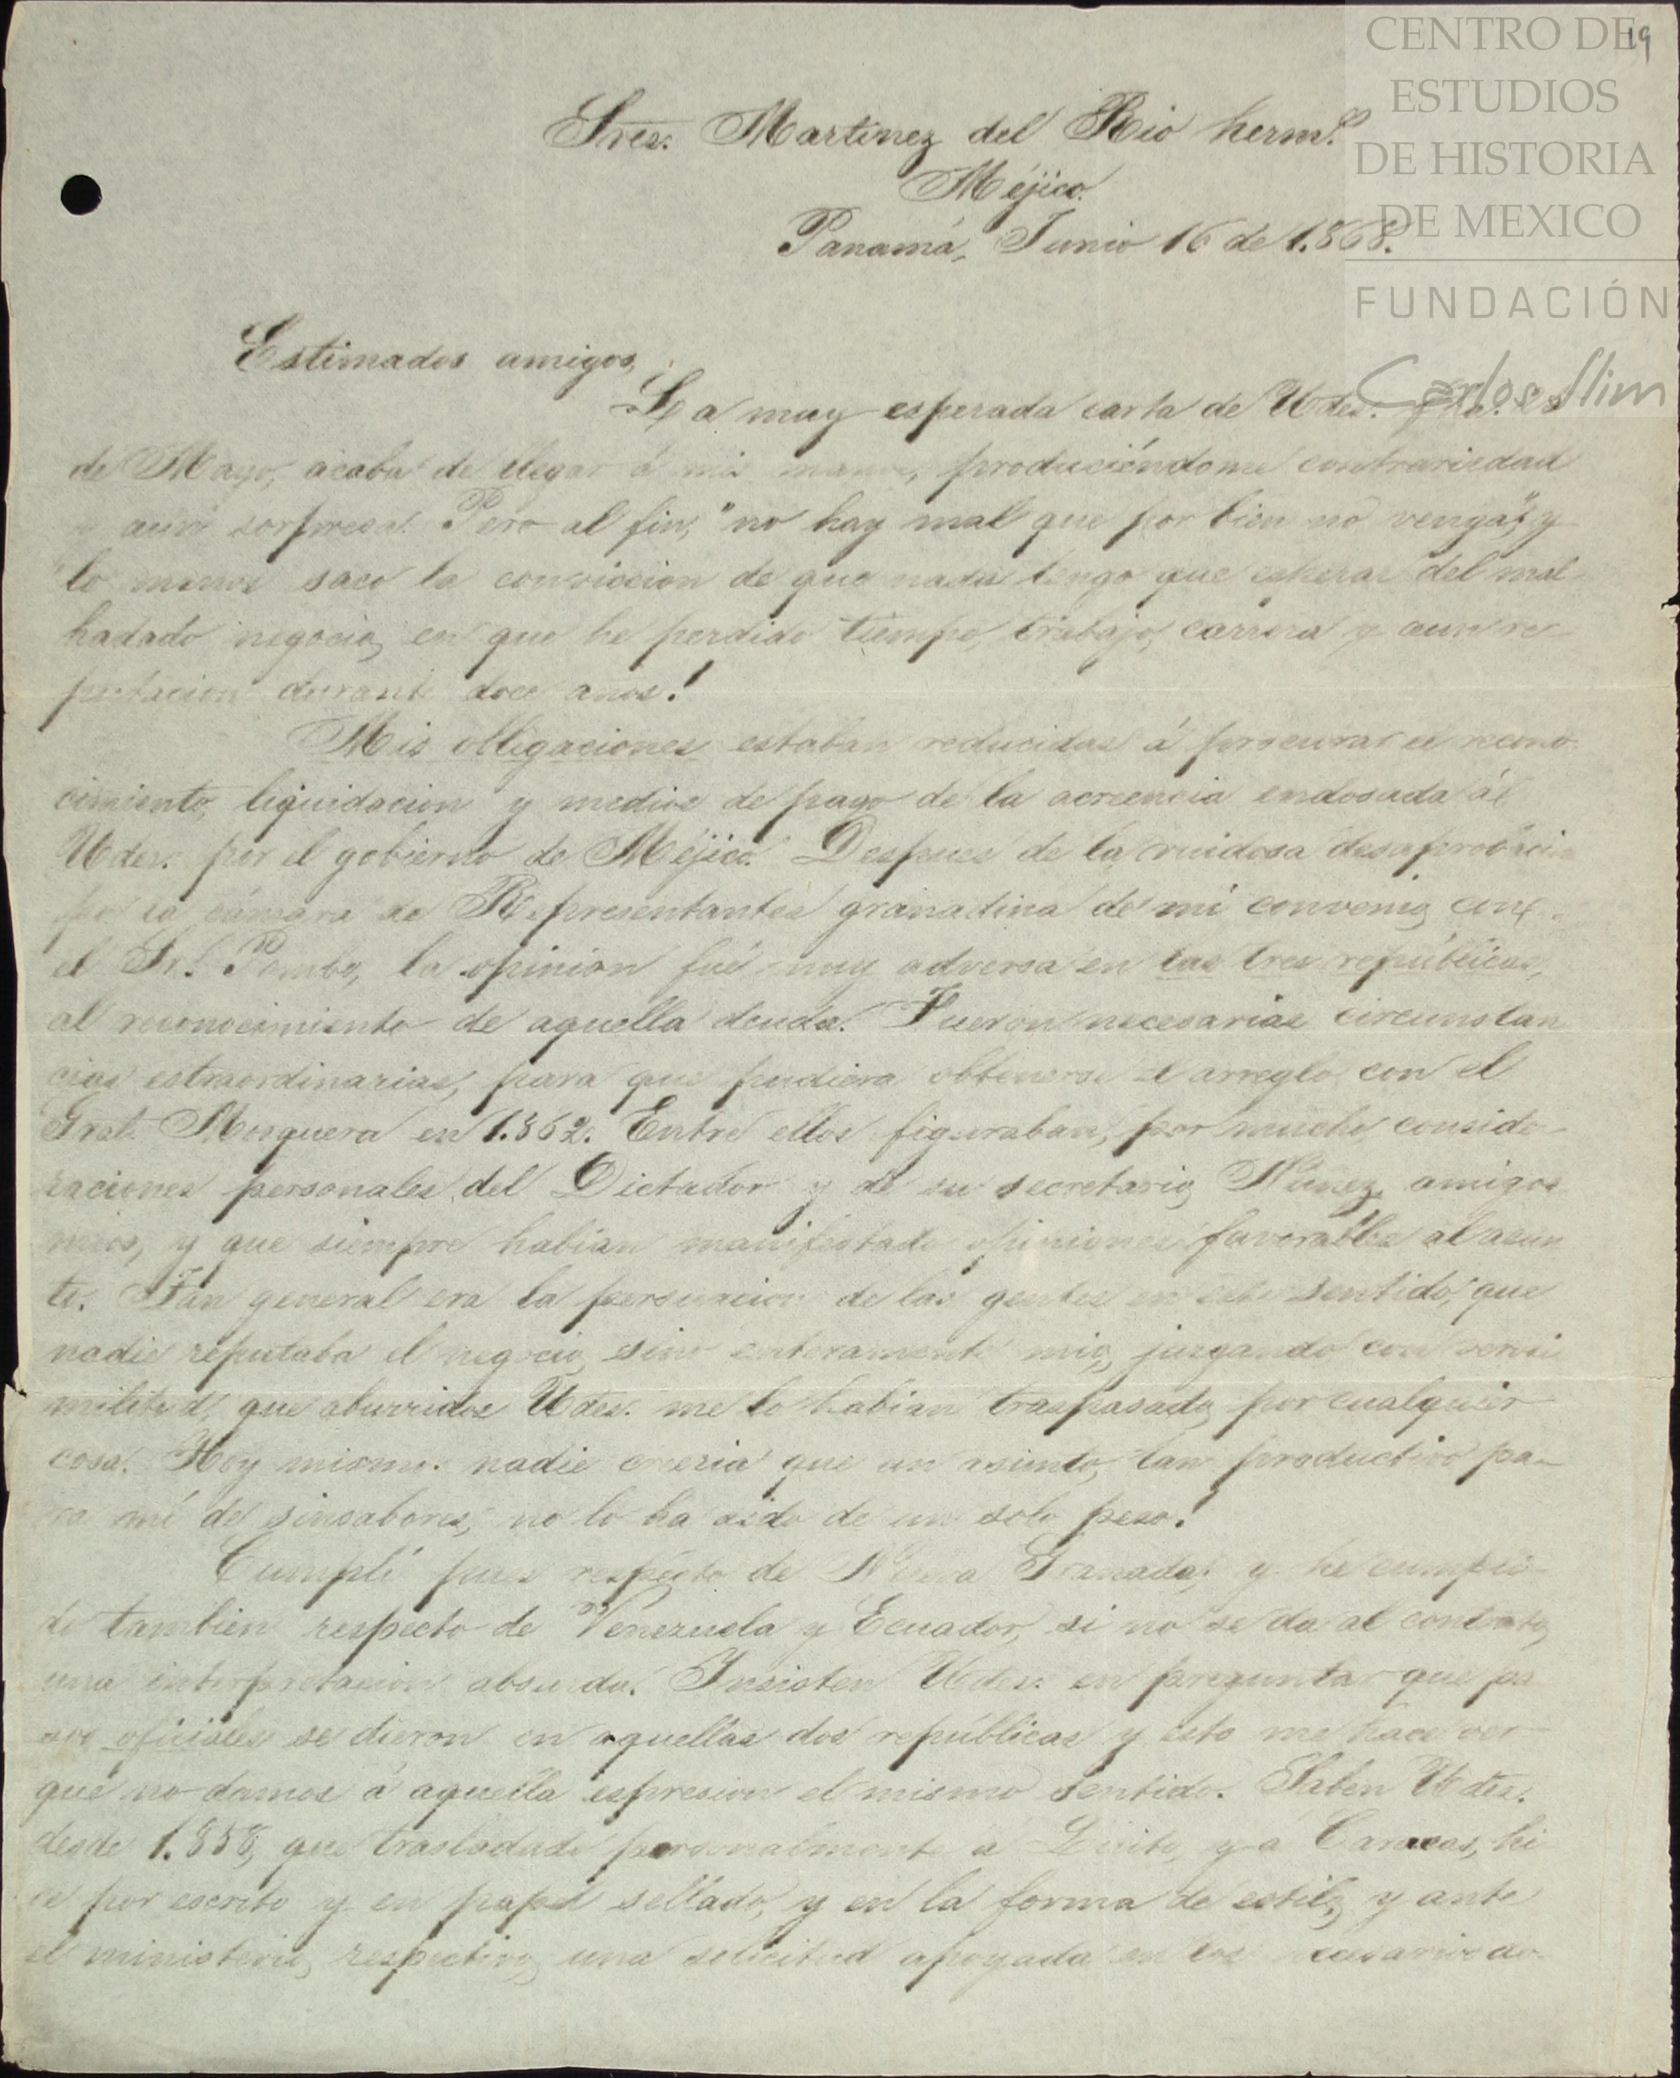 19
CENTRO DE
ESTUDIOS
DE HISTORIA
DE MEXICO
FUNDACIÓN
Carlos Slim
Sres. Martínez del Rio herm.s
Méjico.
Panamá, Junio 16 de 1.868.
Estimados amigos,
La muy esperada carta de Udes.
de Mayo, acaba de llegar á mis manos, produciéndome contrariedad
y aun sorpresa. Pero al fin, "no hay mal que por bien no venga", y
lo menos saco la conviccion de que nada tengo que esperar del mal-
hadado negocio, en que he perdido tiempo, trabajo, carrera y aun re-
putacion durante doce años!
Mis obligaciones estaban reducidas á procurar el recono-
cimiento, liquidacion y medios de pago de la acreencia endosada á
Udes. por el gobierno de Méjico. Despues de la ruidosa desaprobacion
por la cámara de Representantes granadina de mi convenio con
el Sr. Pombo, la opinion fué muy adversa en las tres repúblicas,
al reconocimiento de aquella deuda. Fueron necesarias circunstan
cias estraordinarias, para que pudiera obtenerse el arreglo con el
Gral. Mosquera en 1.862. Entre ellos figuraban, por mucho, conside-
raciones personales del Dictador y de su secretario Núnez, amigos
mios, y que siempre habian manifestado opiniones favorables al asun
to. Tan general era la persuacion de las gentes en este sentido, que
nadie reputaba el negocio, sino enteramente mio, juzgando con verosi
militud, que aburridos Udes. me lo habian traspasado por cualquier
cosa. Hoy mismo nadie creeria que un asunto, tan productivo pa-
ra mí de sinsabores, no lo ha sido de un solo peso!
Cumplí pues respecto de Nueva Granada, y he cumpli-
do tambien respecto de Venezuela y Ecuador, si no se da al contrato,
una interpretacion absurda. Insisten Udes. en preguntar que pa
sos oficiales se dieron en aquellas dos repúblicas y esto me hace ver
que no damos á aquella espresion el mismo sentido. Saben Udes.
desde 1.858, que trasladado personalmente a Quito, y a Caracas, hi
ce por escrito y en papel sellado, y en la forma de estilo, y ante
el ministerio respectivo, una solicitud apoyada en los necesarios do-